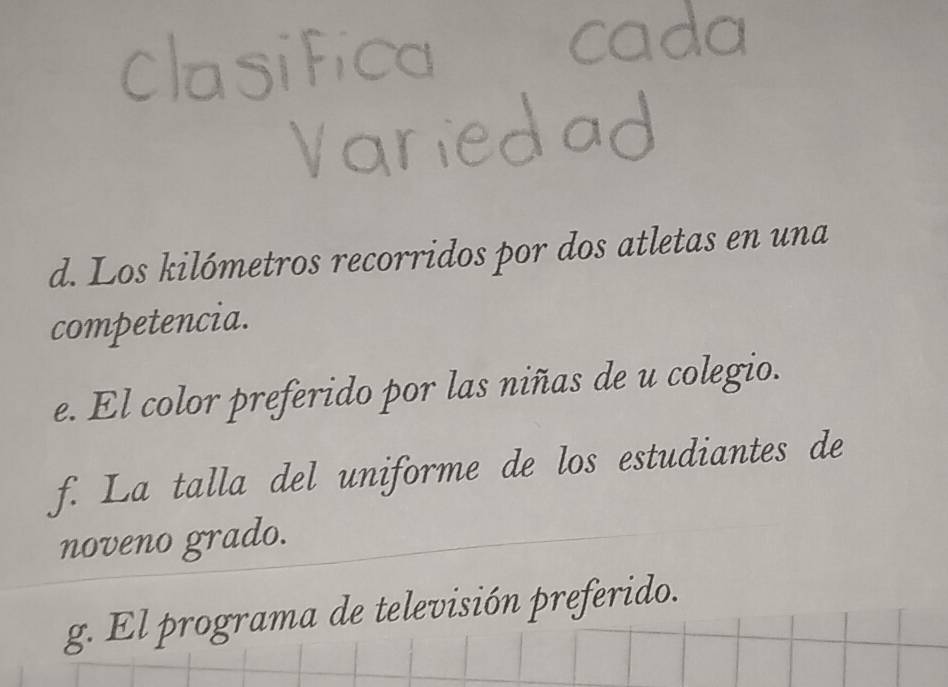 clasifica cada
variedad
d. Los kilómetros recorridos por dos atletas en una
competencia.
e. El color preferido por las niñas de u colegio.
f. La talla del uniforme de los estudiantes de
noveno grado.
g. El programa de televisión preferido.